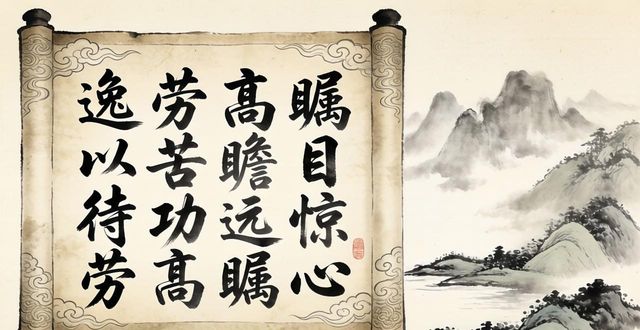 瞩目惊心
高瞻远瞩
劳苦功高
逸以待劳